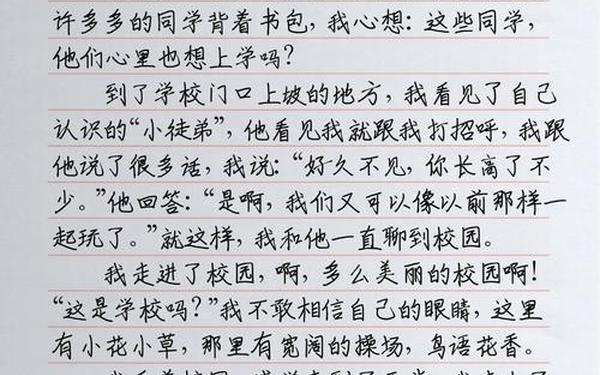 许多多的同学背着书包，我心想：这些同学，
他们心里也想上学吗？
到了学校门口上坡的地方，我看见了自己
认识的“小徒弟”，他看见我就跟我打招呼，我跟
他说了很多话，我说：“好久不见，你长高了不
少。”他回答：“是啊，我们又可以像以前那样一
起玩了。”就这样，我和他一直聊到校园。
我走进了校园，啊，多么美丽的校园啊！
“这是学校吗？”我不敢相信自己的眼睛，这里
有小花小草，那里有宽阔的操场，鸟语花香。